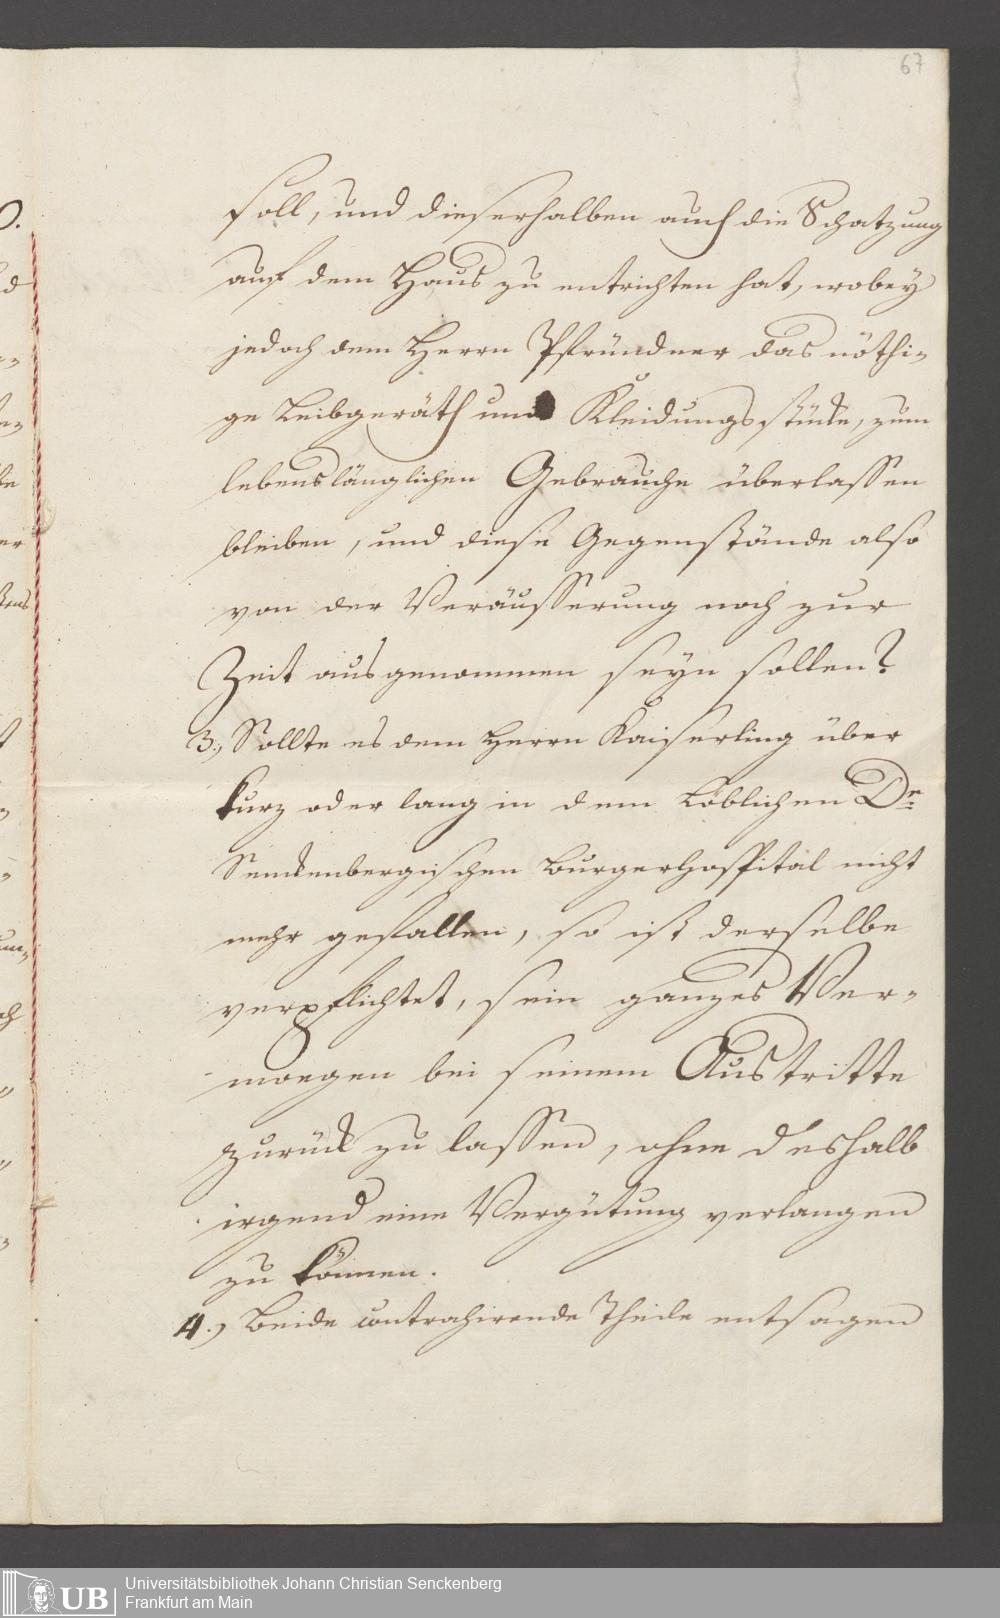 67
soll, und dieserhalben auch die Schatzung
auf dem Haus zu entrichten hat, wobey
jedoch dem Herrn Pfründner das nöthi-
ge Leibgeräth und Kleidungsstücke, zum
lebenslänglichen Gebrauche überlassen
bleiben, und diese Gegenstände also
von der Veräusserung noch zur
Zeit ausgenommen seyn sollen?
3., Sollte es dem Herrn Kaiserling über
kurz oder lang in dem Löblichen Dr
Senckenbergischen Burgerhospital nicht
mehr gefallen, so ist derselbe
verpflichtet, sein ganzes Ver-
moegen bei seinem Austritte
zurück zu lassen, ohne deshalb
irgend eine Vergütung verlangen
zu können.
4., Beide contrahirende Theile entsagen
UB
Universitätsbibliothek Johann Christian Senckenberg
Frankfurt am Main